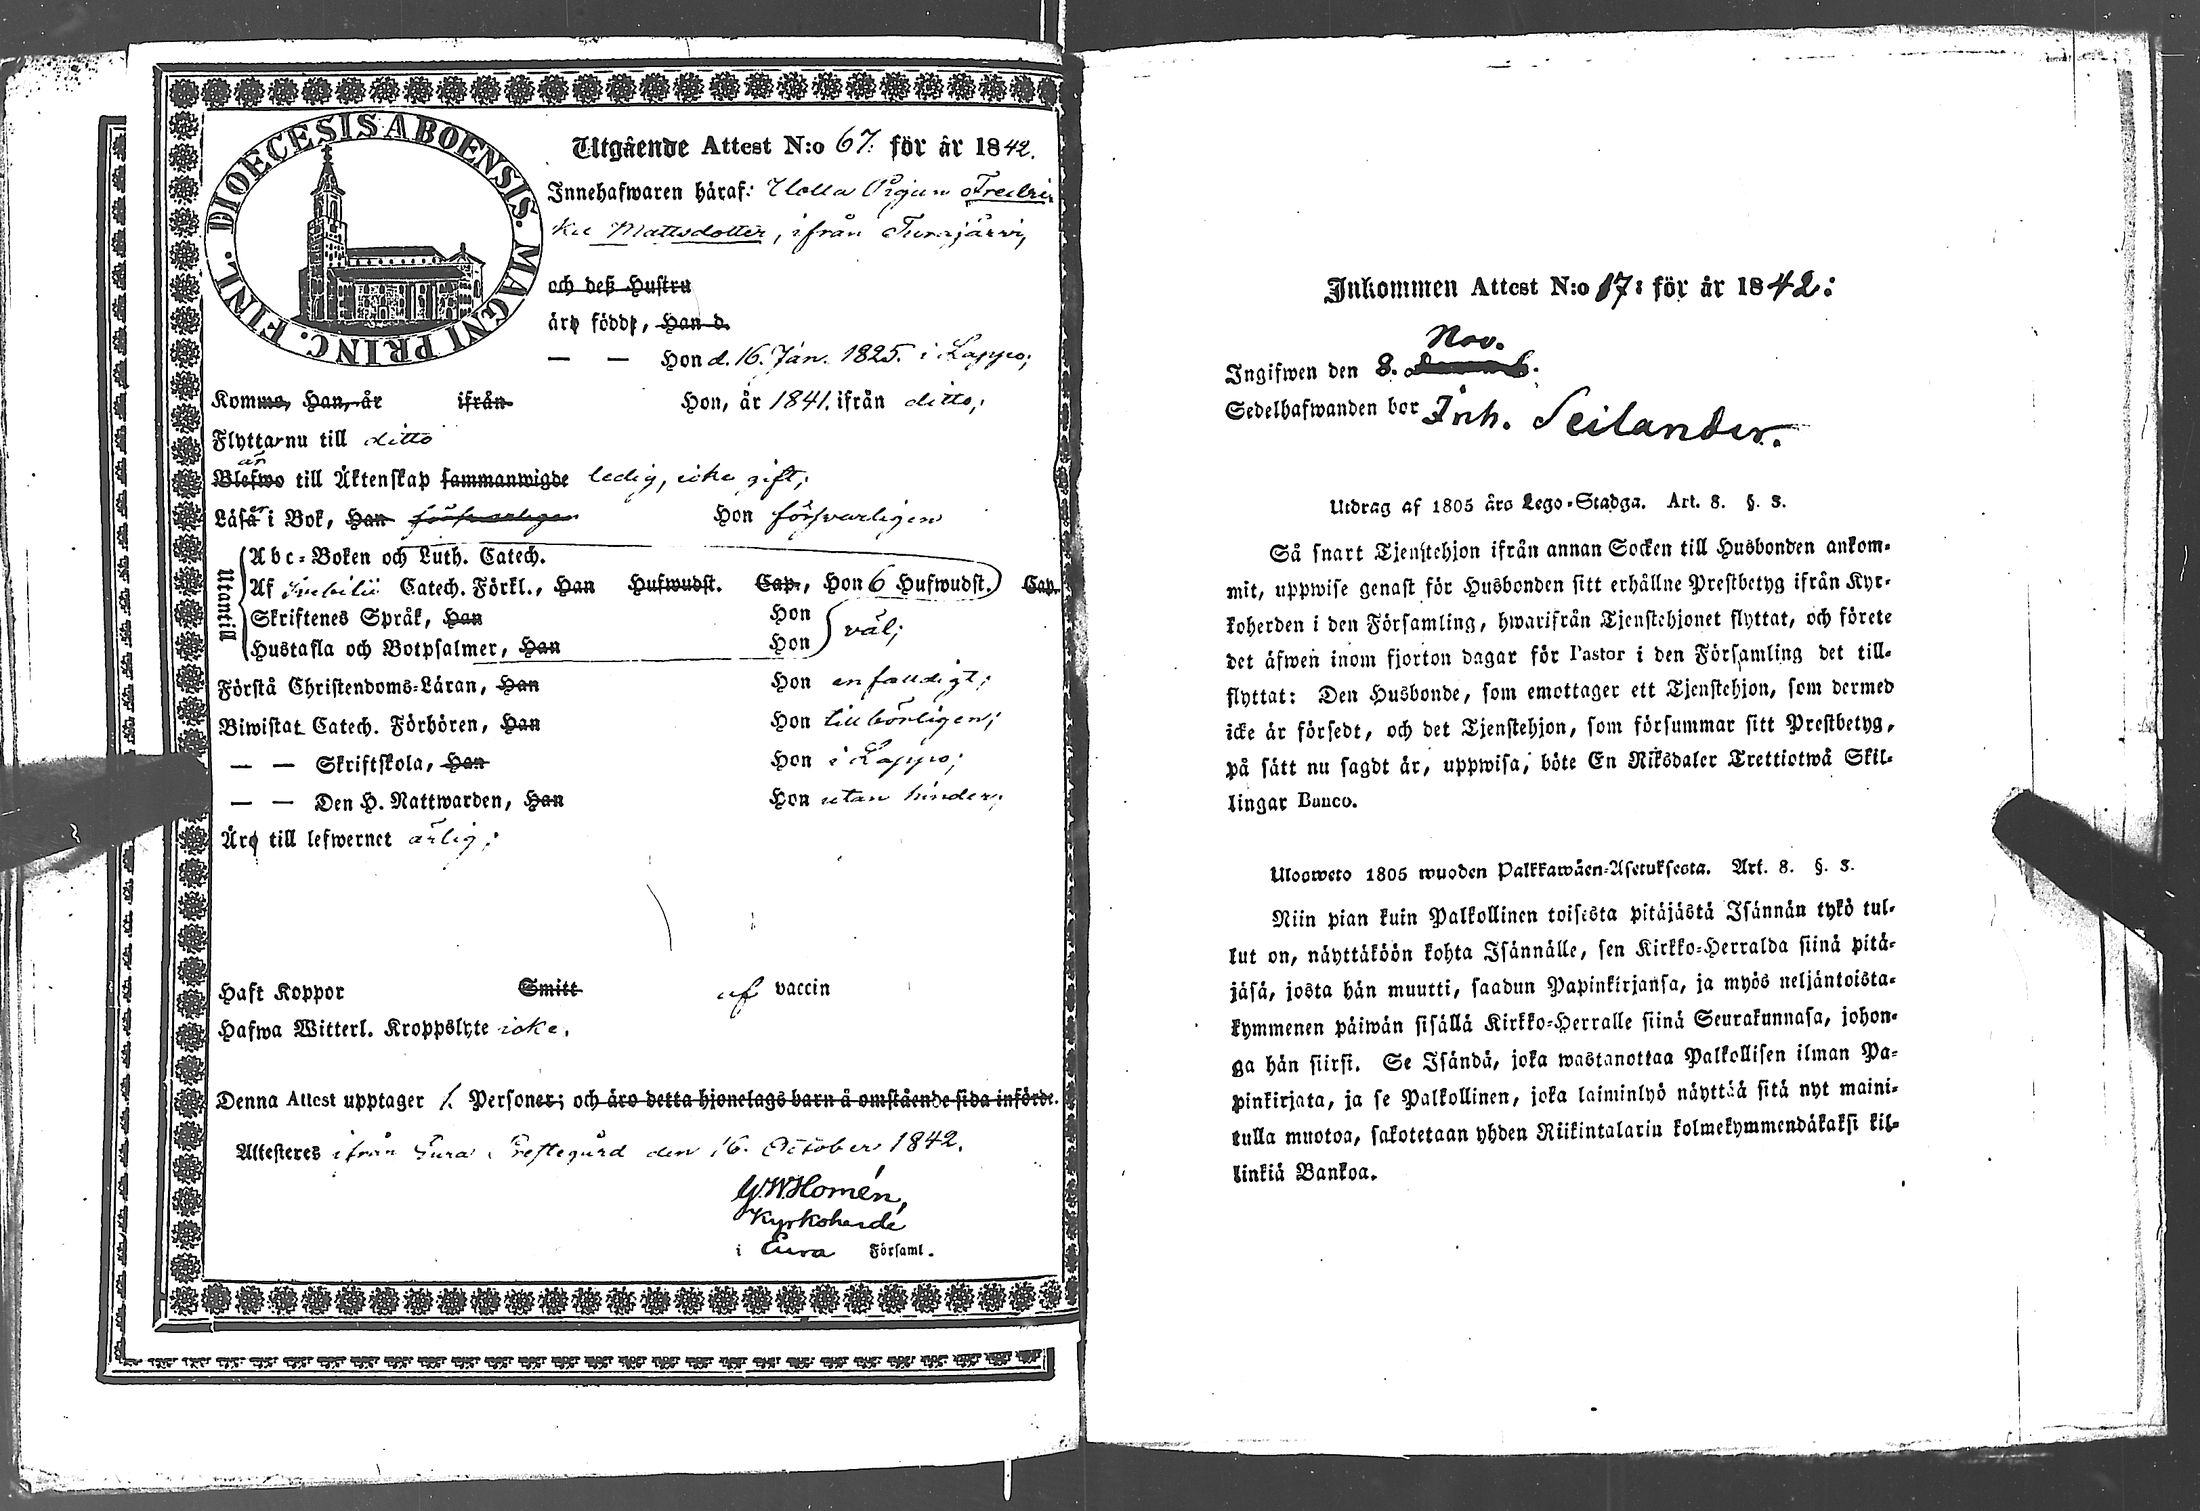 DIOECESIS ABOENSIS. MAGNI PRINC. FINL.
Utgående Attest N:o 67. för år 1842.
Innehafwaren häraf: Piigan Fredri-
ka Mattsdotter, ifrån Turajärvi,
och deß Hustru
äro födde, Han d.
— — Hon d. 16. Jan. 1825. i Lappo;
Komme, Han, år ifrån Hon, år 1841. ifrån ditto;
Flyttar nu till ditto
är
Blefwo till Äktenskap sammanwigde ledig, icke gift;
Läsa er i Bok, Han försvarligen Hon försvarligen
Utantill
Abc-Boken och Luth. Catech.
Af Svebilii Catech. Förkl., Han Hufwudst. Cap., Hon 6 Hufwudst. Cap.
Skriftenes Språk, Han Hon
Hustafla och Botpsalmer, Han Hon väl;
Förstå Christendoms-Läran, Han Hon enfaldigt;
Biwistat Catech. Förhören, Han Hon tillbörligen;
— — Skriftskola, Han Hon i Lappo;
— — Den H. Nattwarden, Han Hon utan hinder;
Äro till lefwernet ärlig;
Haft Koppor Smitt af vaccin
Hafwa Witterl. Kroppslyte icke.
Denna Attest upptager 1. Personer; och äro detta hjonelags barn å omstående sida införde.
Attesteres ifrån Eura Prestegård den 16. October 1842.
G.W.Homén,
Kyrkoherde
i Eura Församl.
Inkommen Attest N:o 17: för år 1842:
Nov.
Ingifwen den 8.
Sedelhafwanden bor Inh. Seilander.
Utdrag af 1805 års Lego-Stadga. Art. 8. §. 3.
Så snart Tjenstehjon ifrån annan Socken till Husbonden ankom-
mit, uppwise genast för Husbonden sitt erhållne Prestbetyg ifrån Kyr-
koherden i den Församling, hwarifrån Tjenstehjonet flyttat, och förete
det äfwen inom fjorton dagar för Pastor i den Församling det till-
flyttat: Den Husbonde, som emottager ett Tjenstehjon, som dermed
icke är försedt, och det Tjenstehjon, som försummar sitt Prestbetyg,
på sätt nu sagdt är, uppwisa, böte En Riksdaler Trettiotwå Skil-
lingar Banco.
Ulosweto 1805 wuoden Palkkawäen-Asetuksesta. Art. 8. §. 3.
Niin pian kuin Palkollinen toisesta pitäjästä Isännän tykö tul-
lut on, näyttäköön kohta Isännälle, sen Kirkko-Herralda siinä pitä-
jäsä, josta hän muutti, saadun Papinkirjansa, ja myös neljäntoista-
kymmenen päiwän sisällä Kirkko-Herralle siinä Seurakunnasa, johon-
ga hän siirsi. Se Isändä, joka wastanottaa Palkollisen ilman Pa-
pinkirjata, ja se Palkollinen, joka laiminlyö näyttää sitä nyt maini-
tulla muotoa, sakotetaan yhden Riikintalarin kolmekymmendäkaksi kil-
linkiä Bankoa.